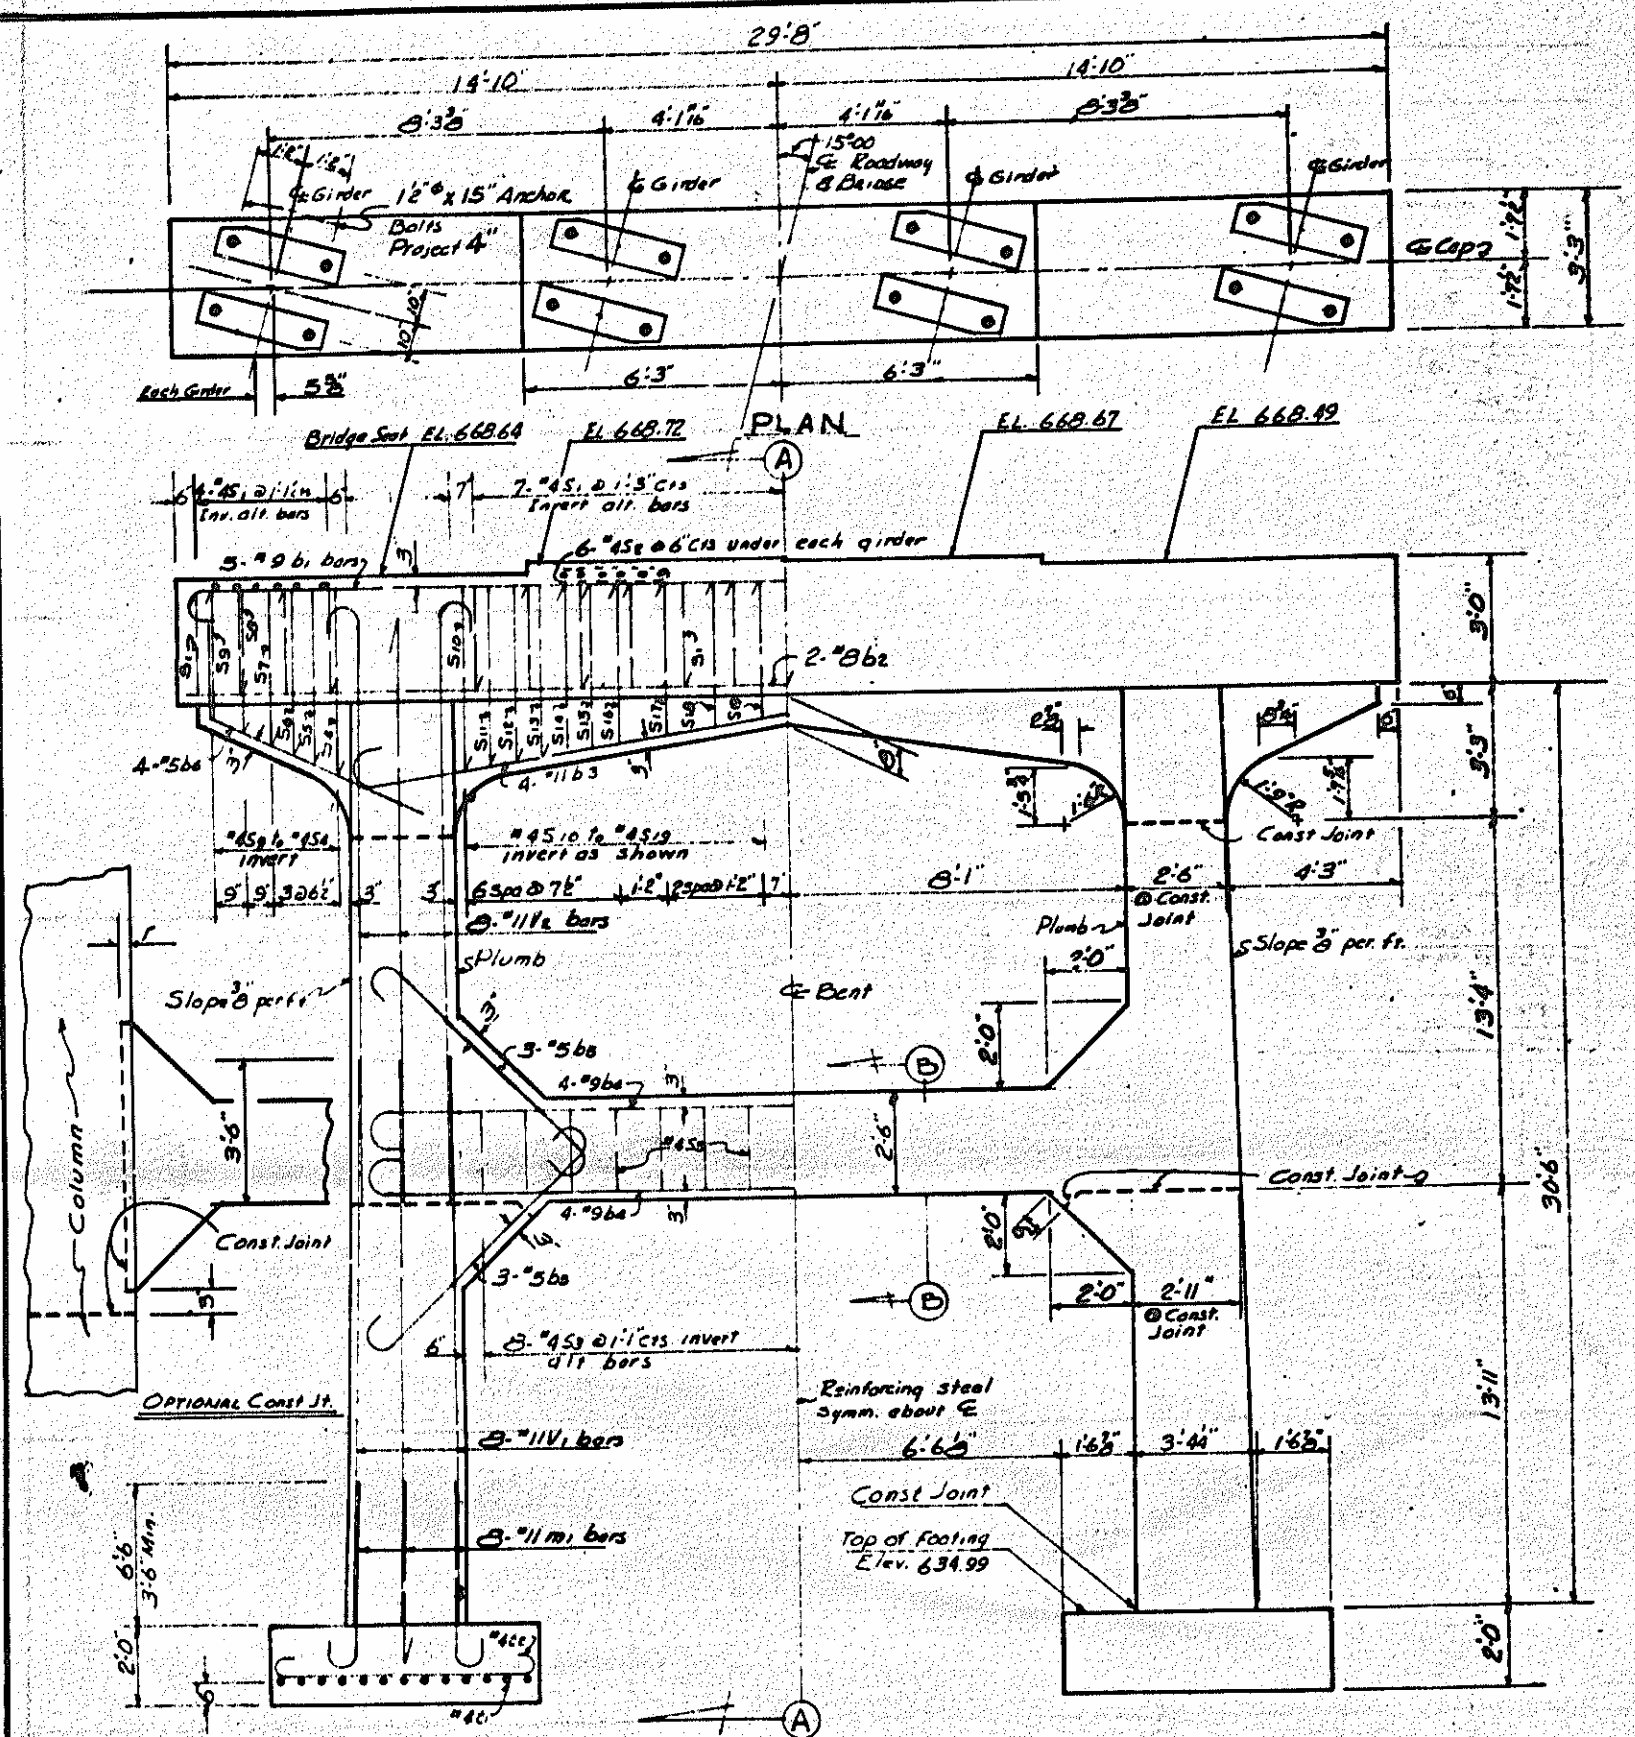 29'-8"
14'-10"
14'-10"
8'-3⅜"
4'-1 11/16"
4'-1 11/16"
8'-3⅜"
15°00
℄ Roadway
& Bridge
1'-2"
1'-2"
℄ Girder
1½"ᶲ x 15" Anchor
Bolts
Project 4"
℄ Girder
℄ Girder
℄ Girder
℄ Cap
1'-7½"
1'-7½"
3'-3"
10"
10"
Each Girder
5⅝"
6'-3"
6'-3"
PLAN
Bridge Seat EL. 668.64
EL 668.72
EL. 668.67
EL 668.49
A
6"
4-#4S1 @ 1'-1"cts
Inv. alt. bars
6"
7"
7-#4S1 @ 1'-3" Cts
Invert alt. bars
5-#9 b1 bars
3"
6-#4S2 @ 6"Cts under each girder
S1
S9
S8
S7
S6
S5
S4
S10
S11
S12
S13
S14
S15
S16
S17
S18
S19
S1
2-#8b2
3'-0"
3'-3"
6"
6"
4-#5b6
3"
4-#11 b3
3"
8"
1'-9"R
Const Joint
#4S9 to #4S4
invert
#4S10 to #4S19
invert as shown
9"
9"
3@6½"
3"
3"
6 spa @ 7½"
1'-2"
2spa@1'-2"
7"
8'-1"
2'-6"
@ Const.
Joint
4'-3"
8-#11V2 bars
Plumb
Plumb
Slope ⅜" per ft.
Slope ⅜" per ft
1"
2'-0"
2'-0"
℄ Bent
13'-4"
30'-6"
3"
3-#5b5
B
4-#9b4
3"
2'-6"
3'-6"
Column
Const. Joint
3"
4-#9b4
3"
3"
3-#5b5
Const. Joint
2'-0"
2'-0"
2'-11"
@ Const.
Joint
B
6"
8-#4S3 @ 1'-1"cts invert
alt bars
OPTIONAL Const Jt.
Reinforcing steel
Symm. about ℄
13'-11"
8-#11V1 bars
6'-6⅛"
1'-6⅞"
3'-4¼"
1'-6⅞"
Const Joint
8-#11 m1 bars
Top of Footing
Elev. 634.99
6'-6"
3'-6" Min.
2'-0"
6"
#4t2
#4t1
2'-0"
A